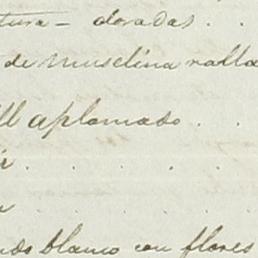 tura - doradas . .
de muselina ralla
ll aplomado . . .
blanco con flores